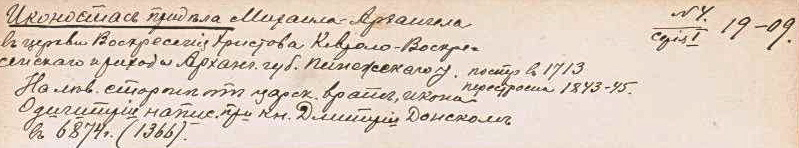 Иконостасъ придѣла Михаила-Архангела
въ церкви Воскресенія Христова Кевроло-Воскре-
сенскаго прихода Арханг. губ. Пинежскаго у. постр. въ 1713
перестроена 1843-45.
На лѣв. сторонѣ отъ царск. вратъ, икона
Одигитріи напис. при кн. Дмитріи Донскомъ
въ 6874 г. (1366).
№ 4. 19-09.
серія I